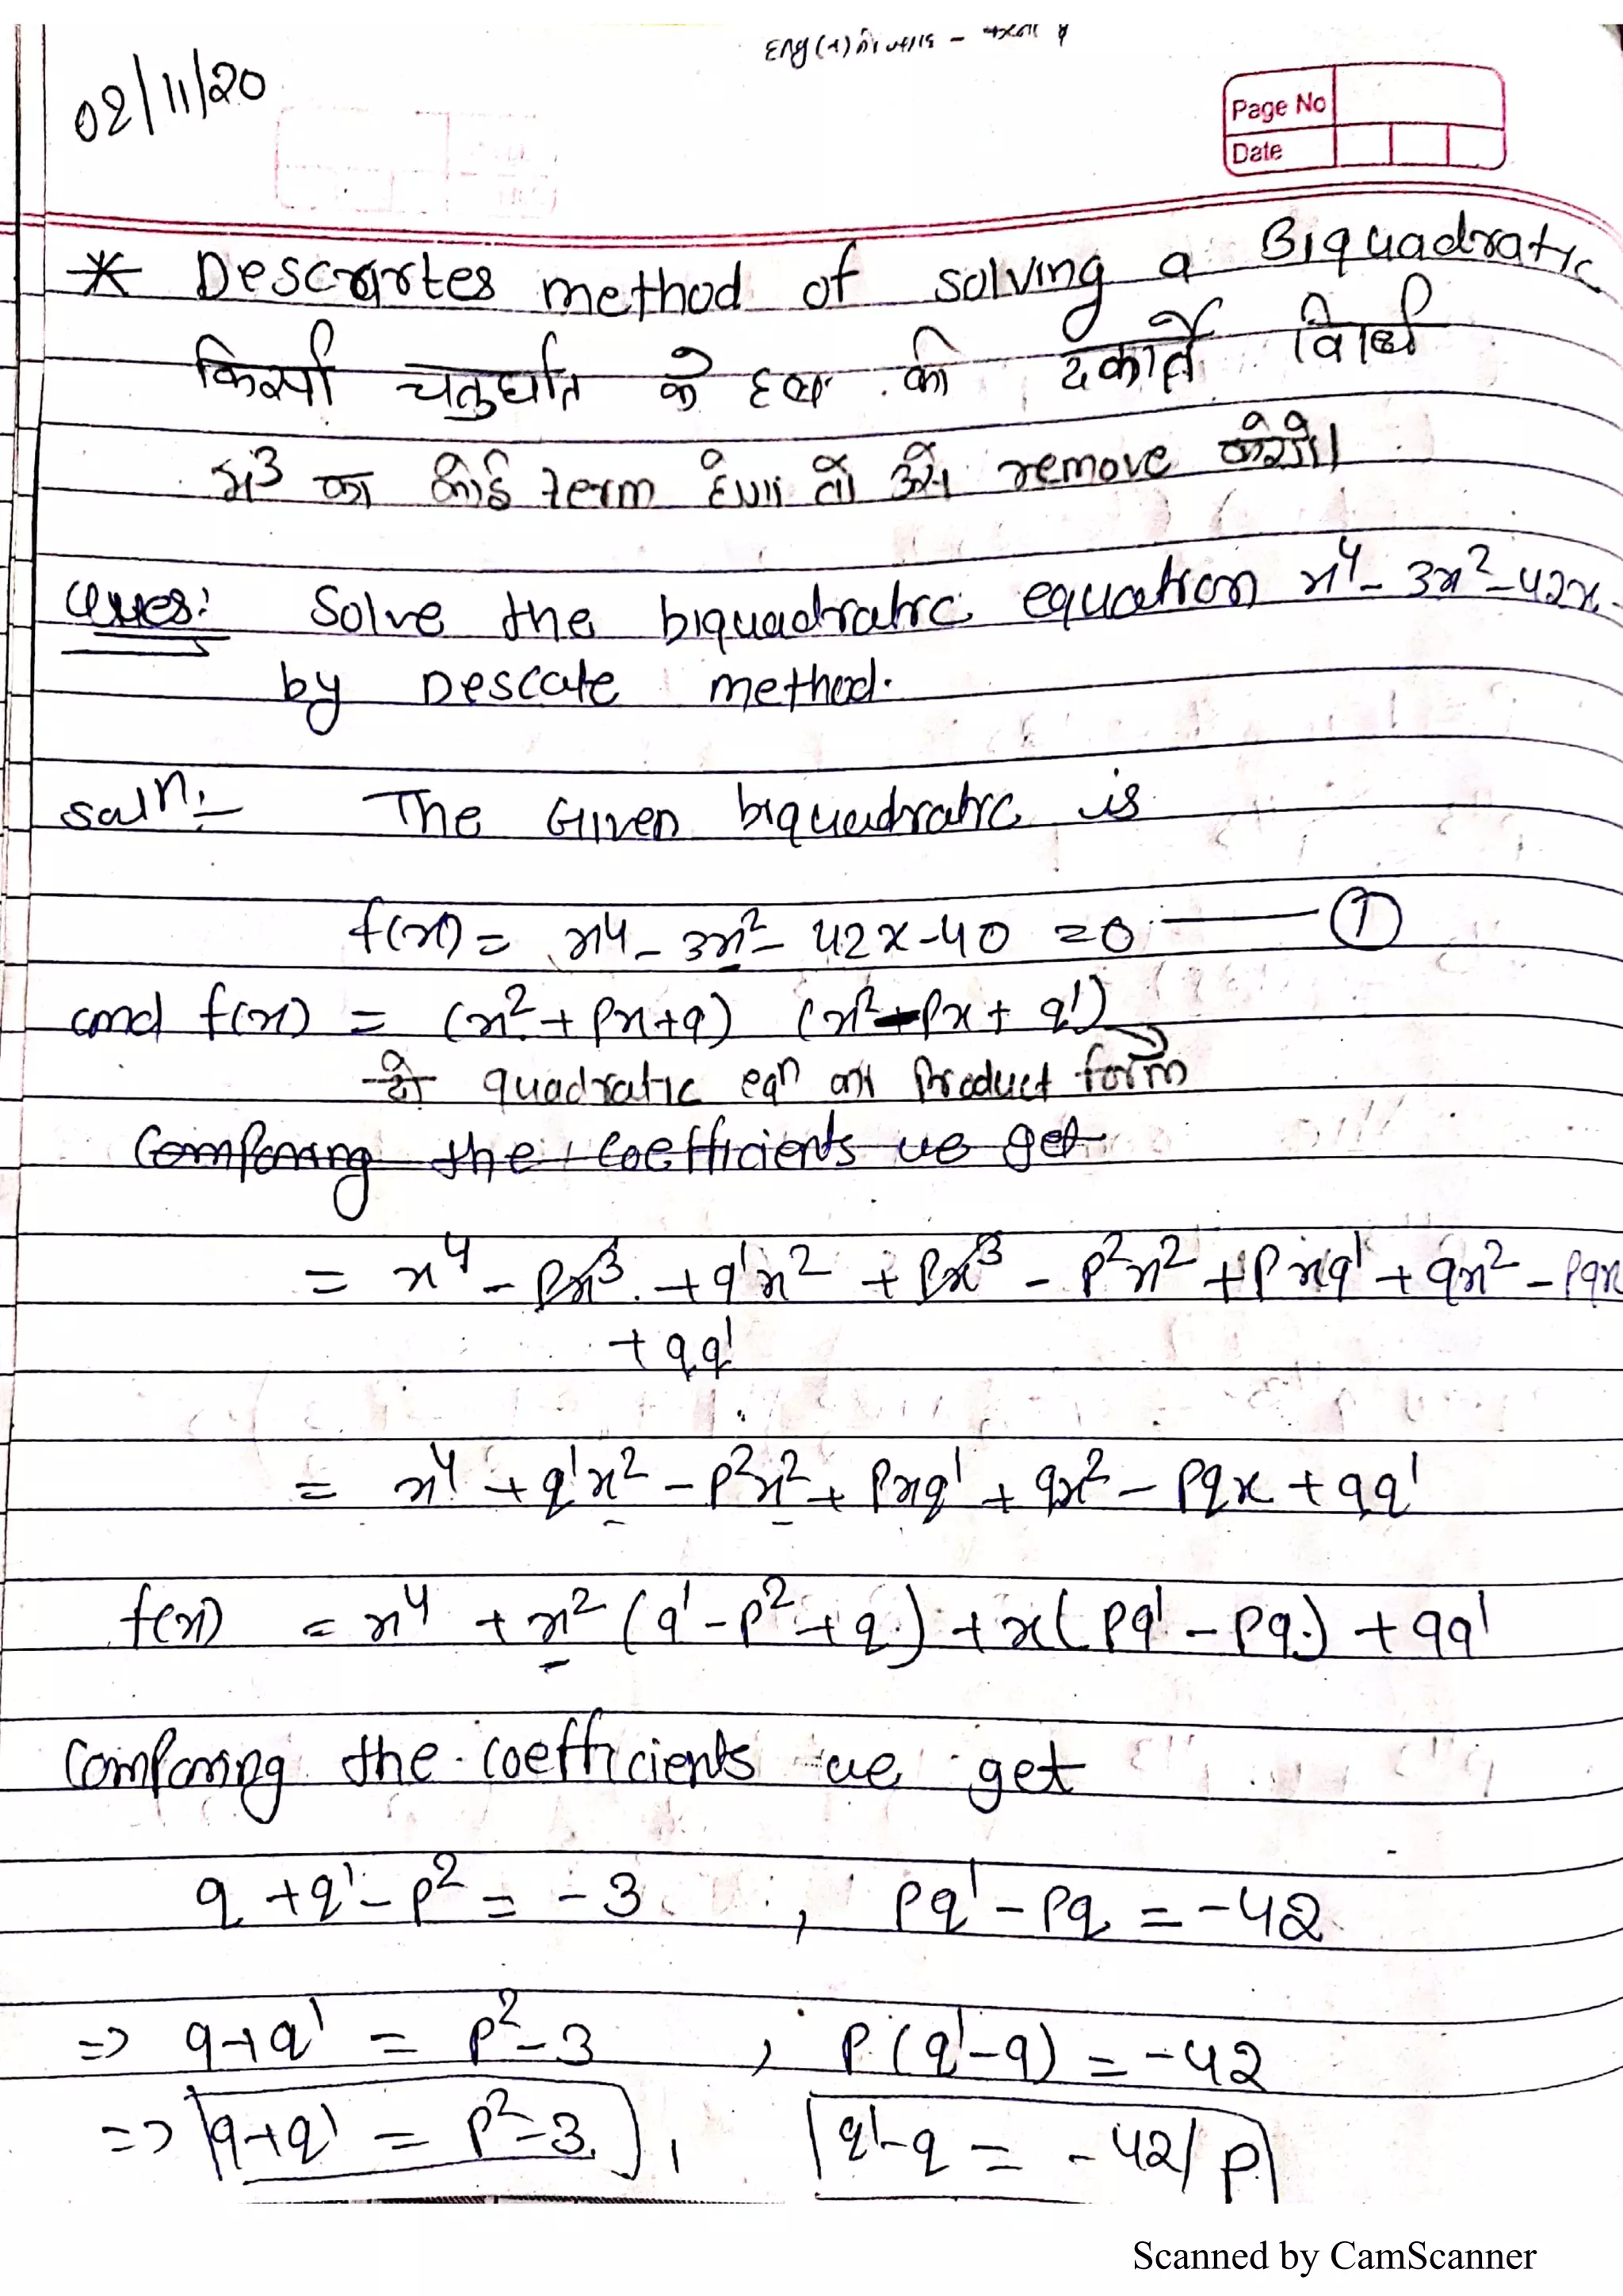 02/11/20
Page No
Date
* Descartes method of solving a Biquadratic
किसी चतुर्घात के हल की दकार्ते विधि
x³ का कोई term होगा तो उसे remove करेंगे।
Ques: Solve the biquadratic equation x⁴- 3x²-42x-
by Descate method.
Solⁿ:- The Given biquadratic is
f(x) = x⁴- 3x²- 42x-40 =0 —— ①
and f(x) = (x²+px+q) (x²-px+q')
दो quadratic eqⁿ का Product form
Comparing the coefficients we get
= x⁴ - px³ + q'x² + px³ - p²x² + pxq' + qx² - pqx
+ qq'
= x⁴ + q'x² - p²x² + pxq' + qx² - pqx + qq'
f(x) = x⁴ + x² (q'-p²+q) + x(pq' - pq) + qq'
Comparing the coefficients we get
q +q'- p² = -3 , pq' - pq = -42
=> q+q' = p²-3 , p(q'-q) = -42
=> q+q' = p²-3 , q'-q = -42/p
Scanned by CamScanner